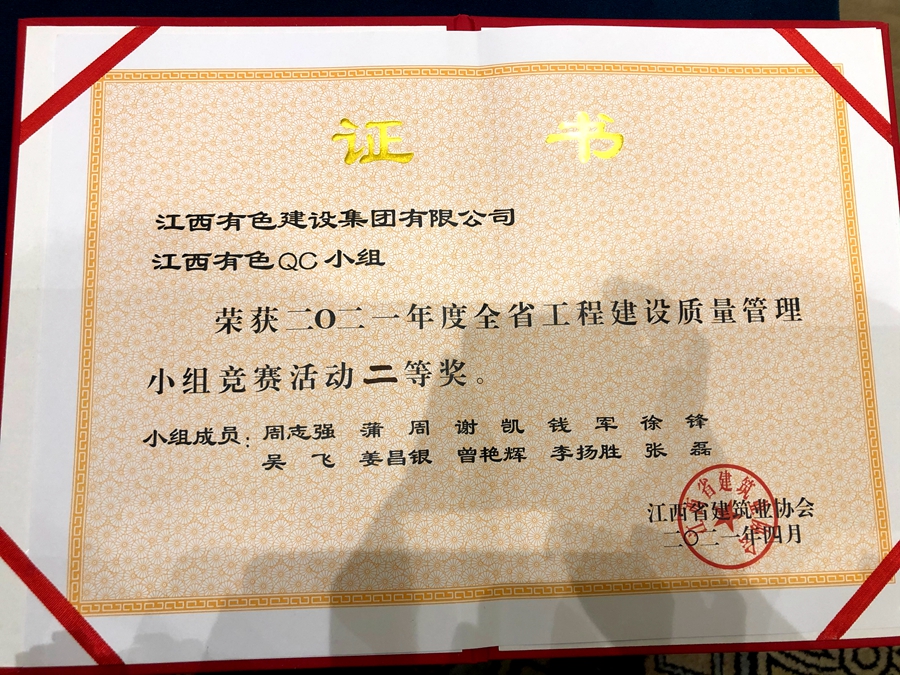 证 书
江西有色建设集团有限公司
江西有色QC小组
荣获二〇二一年度全省工程建设质量管理
小组竞赛活动二等奖。
小组成员：周志强 蒲 周 谢 凯 钱 军 徐 锋
吴 飞 姜昌银 曾艳辉 李扬胜 张 磊
江西省建筑业协会
二〇二一年四月
江西省建筑业协会